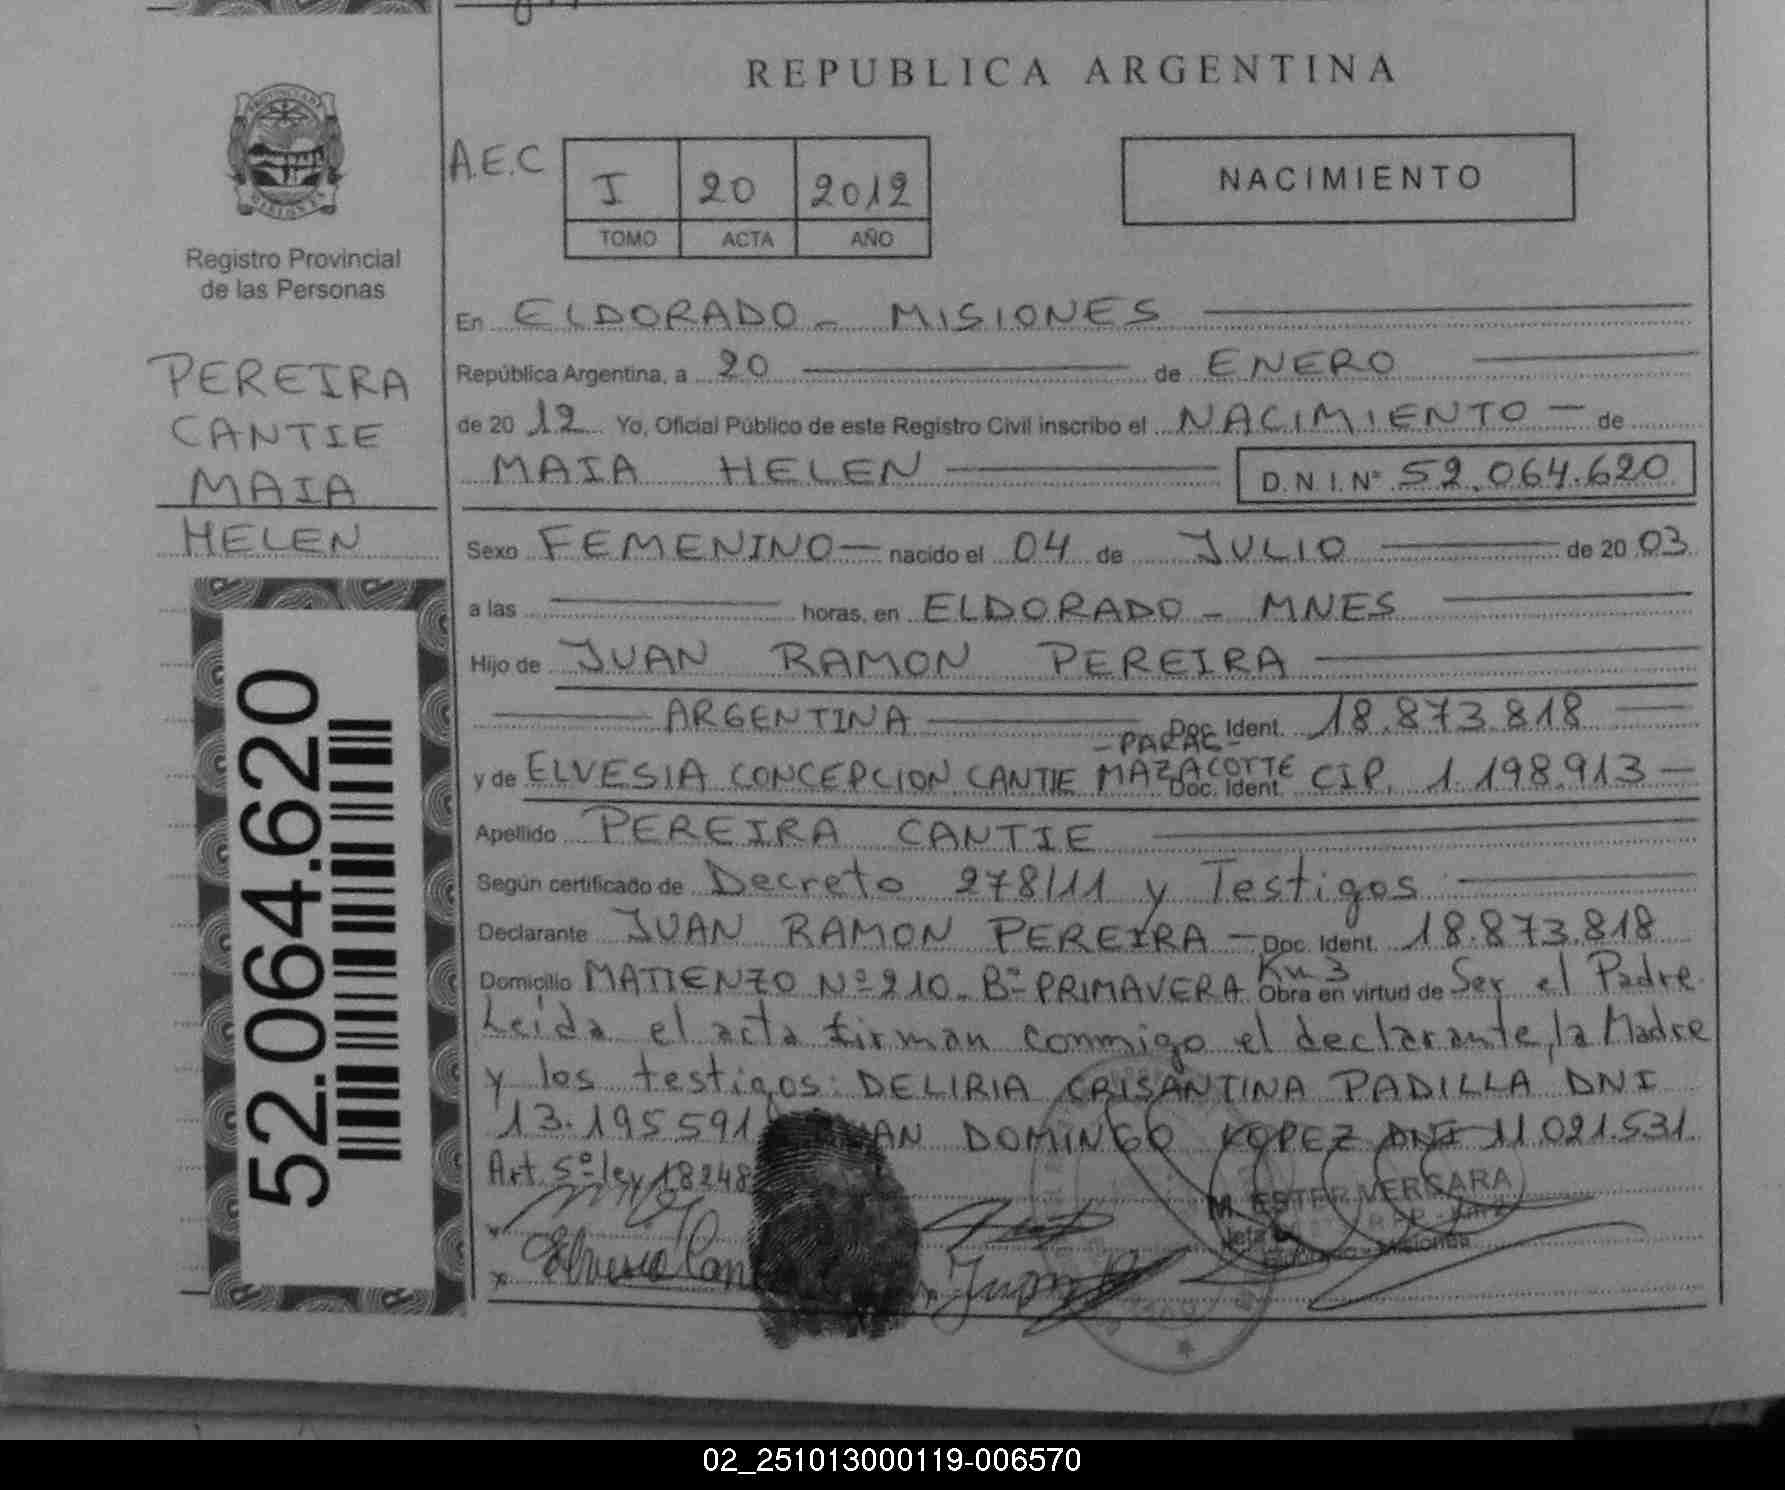 REPUBLICA ARGENTINA
A.E.C
I 20 2012
TOMO ACTA AÑO
NACIMIENTO
Registro Provincial
de las Personas
PEREIRA
CANTIE
MAIA
HELEN
52.064.620
En ELDORADO - MISIONES
República Argentina, a 20 de ENERO
de 20 12 Yo, Oficial Público de este Registro Civil inscribo el NACIMIENTO - de
MAIA HELEN D.N.I. Nº 52.064.620
Sexo FEMENINO - nacido el 04 de JULIO de 20 03
a las horas, en ELDORADO - MNES
Hijo de JUAN RAMON PEREIRA
ARGENTINA Doc. Ident. 18.873.818
y de ELVESIA CONCEPCION CANTIE MAZACOTTE Doc. Ident. CIP. 1.198.913 -
Apellido PEREIRA CANTIE
Según certificado de Decreto 278/11 y Testigos
Declarante JUAN RAMON PEREIRA - Doc. Ident. 18.873.818
Domicilio MATIENZO Nº 210. Bº PRIMAVERA Km 3 Obra en virtud de Ser el Padre.
Leída el acta firman conmigo el declarante, la Madre
y los testigos: DELIRIA CRISANTINA PADILLA DNI
13.195.591 DOMINGO LOPEZ DNI 11.021.531
Art. 5º ley 18248
M. ESTER VERGARA
02_251013000119-006570